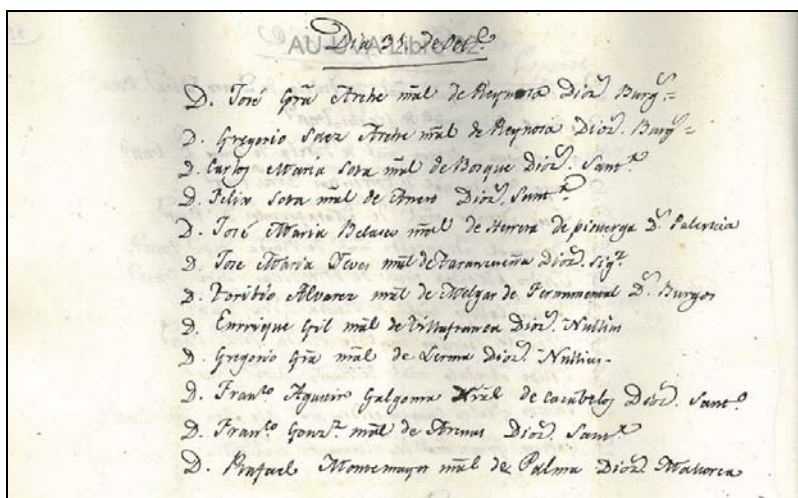 Dia 31. de Octᵉ.
AU-UVA Libro
D. José Grã Arche mãl de Reynosa Dioẑ. Burgˢ=
D. Gregorio Saez Arche mãl de Reynosa Dioẑ. Burgˢ=
D. Carlos Maria Sota mãl de Bosque Dioẑ. Santʳ
D. Felix Sota mãl de Anero Dioẑ. Santʳ
D. José Maria Belasco mãl de Herrera de pisuerga Dˢ. Palencia
D. Jose Maria Yeves mãl de Tarancueña Dioẑ. Sigᶻ.
D. Toribio Alvarez mãl de Melgar de Fernamental Dˢ. Burgos
D. Enrrique Gil mãl de Villafranca Dioẑ. Nullius
D. Gregorio Grã mãl de Lerma Dioẑ. Nullius.
D. Franᶜᵒ Aguirre Galgoma Nrãl de Cacabelos Dioẑ. Santᵒ
D. Franᶜᵒ Gonzᶻ. mãl de Arenas Dioẑ. Santʳ
D. Rafael Montemayor mãl de Palma Dioẑ. Mallorca